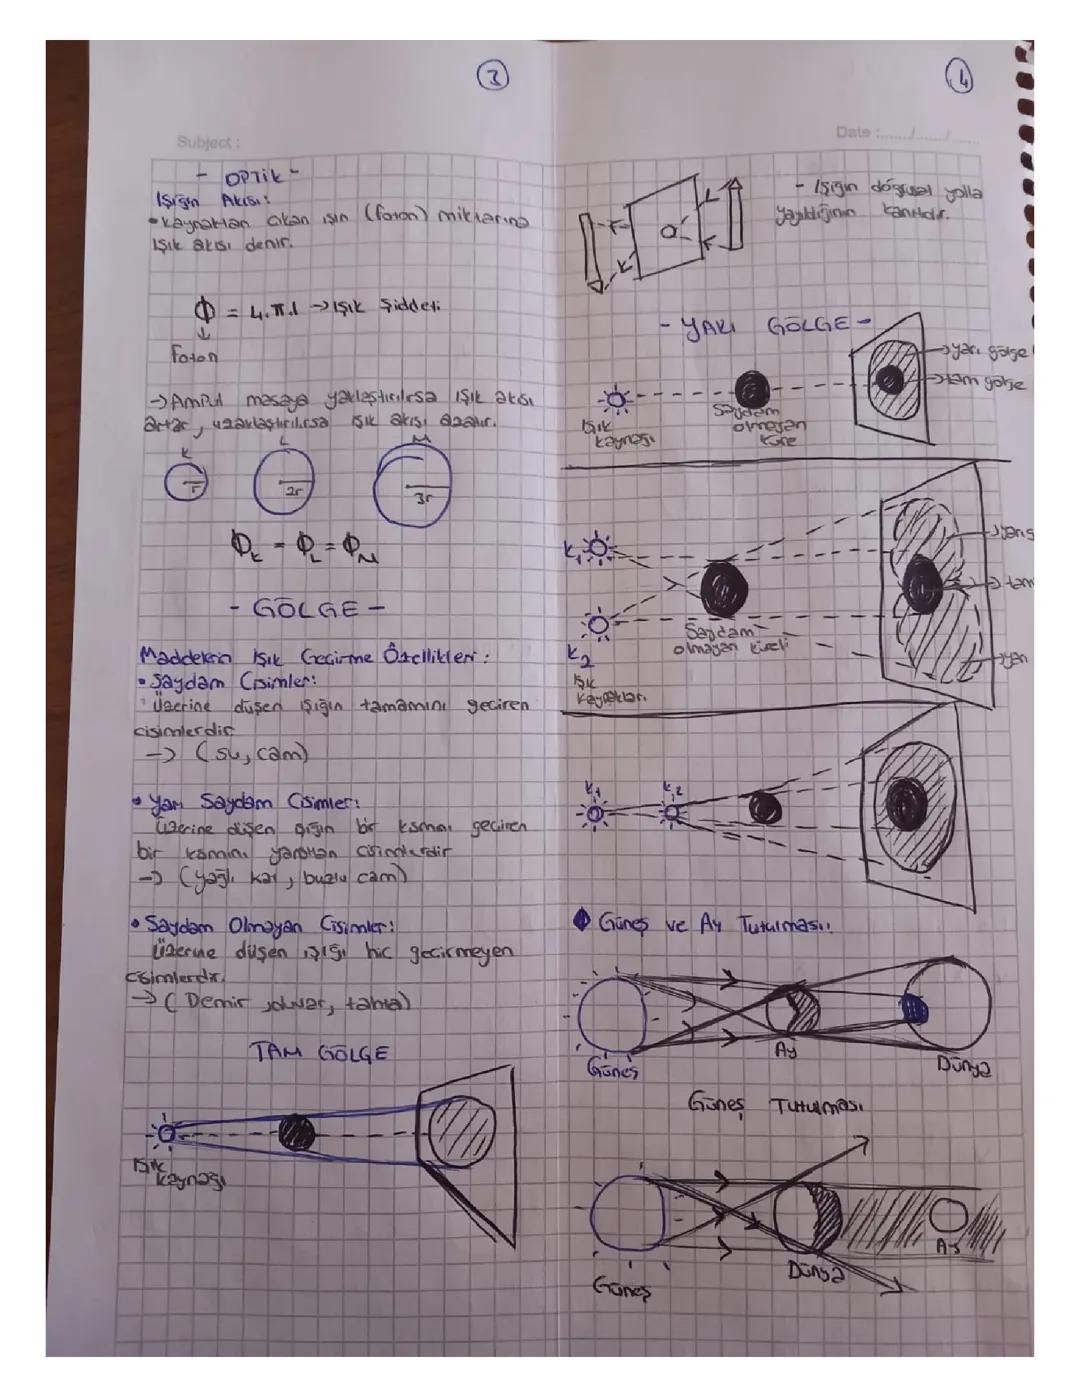 3
Subject :
- OPTiK -
Işığın Akısı:
• Kaynaktan çıkan ışın (foton) miktarına
ışık akısı denir.
Φ = 4.π.I → Işık Şiddeti
↓
Foton
→ Ampul masaya yaklaştırılırsa ışık akısı
artar, uzaklaştırılırsa ışık akısı azalır.
K L M
r 2r 3r
ΦK = ΦL = ΦM
- GÖLGE -
Maddelerin Işık Geçirme Özellikleri :
• Saydam Cisimler:
Üzerine düşen ışığın tamamını geçiren
cisimlerdir
→ (su, cam)
• Yarı Saydam Cisimler:
Üzerine düşen ışığın bir kısmını geçiren
bir kısmını yansıtan cisimlerdir
→ (yağlı kat, buzlu cam)
• Saydam Olmayan Cisimler:
Üzerine düşen ışığı hiç geçirmeyen
cisimlerdir.
→ ( Demir, duvar, tahta)
TAM GÖLGE
Işık
kaynağı
4
Date :....../....../......
- Işığın doğrusal yolla
yayıldığının kanıtıdır.
- YARI GÖLGE -
→ yarı gölge
→ tam gölge
Işık
kaynağı
Saydam
olmayan
küre
K1
K2
Işık
Kaynakları
Saydam
olmayan
→ tam
→ yarı
K1 K2
Güneş ve Ay Tutulması!!
Güneş
Ay
Dünya
Güneş Tutulması
Güneş
Dünya
Ay